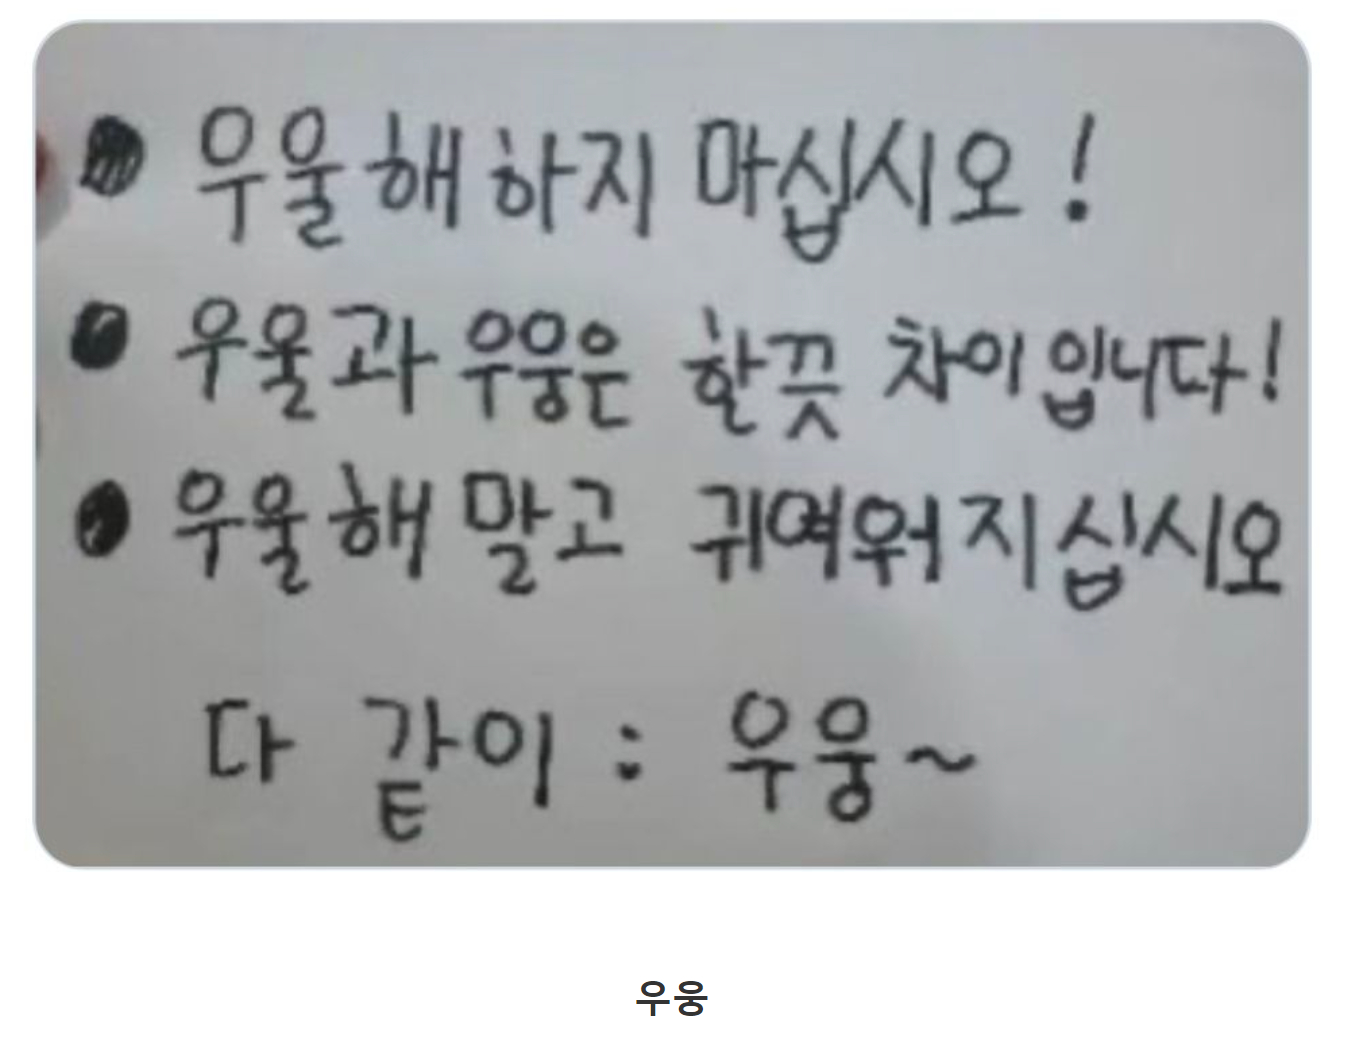 ● 우울해하지 마십시오!
● 우울과 우웅은 한끗 차이입니다!
● 우울해 말고 귀여워지십시오
다 같이 : 우웅~
우웅